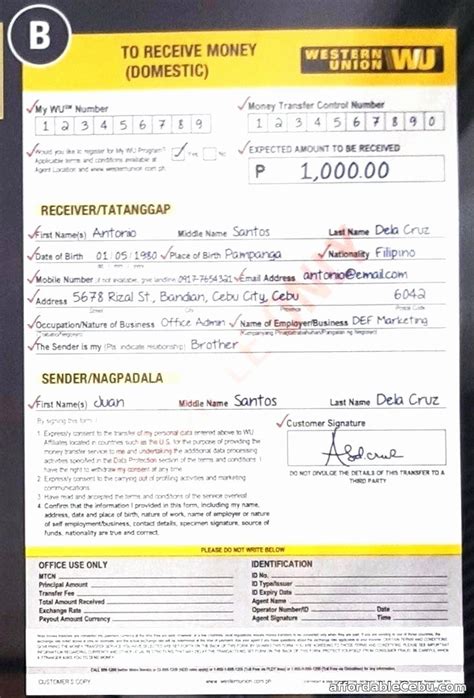 B
TO RECEIVE MONEY
(DOMESTIC)
WESTERN
UNION WU
My WU℠ Number
1 2 3 4 5 6 7 8 9
Money Transfer Control Number
1 2 3 4 5 6 7 8 9 0
Would you like to register for My WU Program?
Applicable terms and conditions available at
Agent Location and www.westernunion.com.ph
Yes No
EXPECTED AMOUNT TO BE RECEIVED
P 1,000.00
RECEIVER/TATANGGAP
First Name(s) Antonio Middle Name Santos Last Name Dela Cruz
Date of Birth 01/05/1980 Place of Birth Pampanga Nationality Filipino
Mobile Number (if not available, give landline) 0917-7654321 Email Address antonio@email.com
Address 5678 Rizal St., Bandian, Cebu City, Cebu 6042
Occupation/Nature of Business Office Admin Name of Employer/Business DEF Marketing
The Sender is my (Pls. indicate relationship) Brother
SENDER/NAGPADALA
First Name(s) Juan Middle Name Santos Last Name Dela Cruz
By signing this form:
1. Expressly consent to the transfer of my personal data entered above to WU
Affiliates located in countries such as the U.S. for the purpose of providing the
money transfer service to me and undertaking the additional data processing
activities specified in the Data Protection section of the terms and conditions. I
have the right to withdraw my consent at any time.
2. Expressly consent to the carrying out of profiling activities and marketing
communications.
3. Have read and accepted the terms and conditions of the service overleaf.
4. Confirm that the information I provided in this form, including my name,
address, date and place of birth, nature of work, name of employer or nature
of self employment/business, contact details, specimen signature, source of
funds, nationality are true and correct.
Customer Signature
DO NOT DIVULGE THE DETAILS OF THIS TRANSFER TO A
THIRD PARTY
PLEASE DO NOT WRITE BELOW
OFFICE USE ONLY
MTCN
Principal Amount
Transfer Fee
Total Amount Received
Exchange Rate
Payout Amount Currency
IDENTIFICATION
ID No.
ID Type/Issuer
ID Expiry Date
Agent Name
Operator Number/ID Date
Agent Signature Time
CUSTOMER'S COPY www.westernunion.com.ph
affordableCebu.com